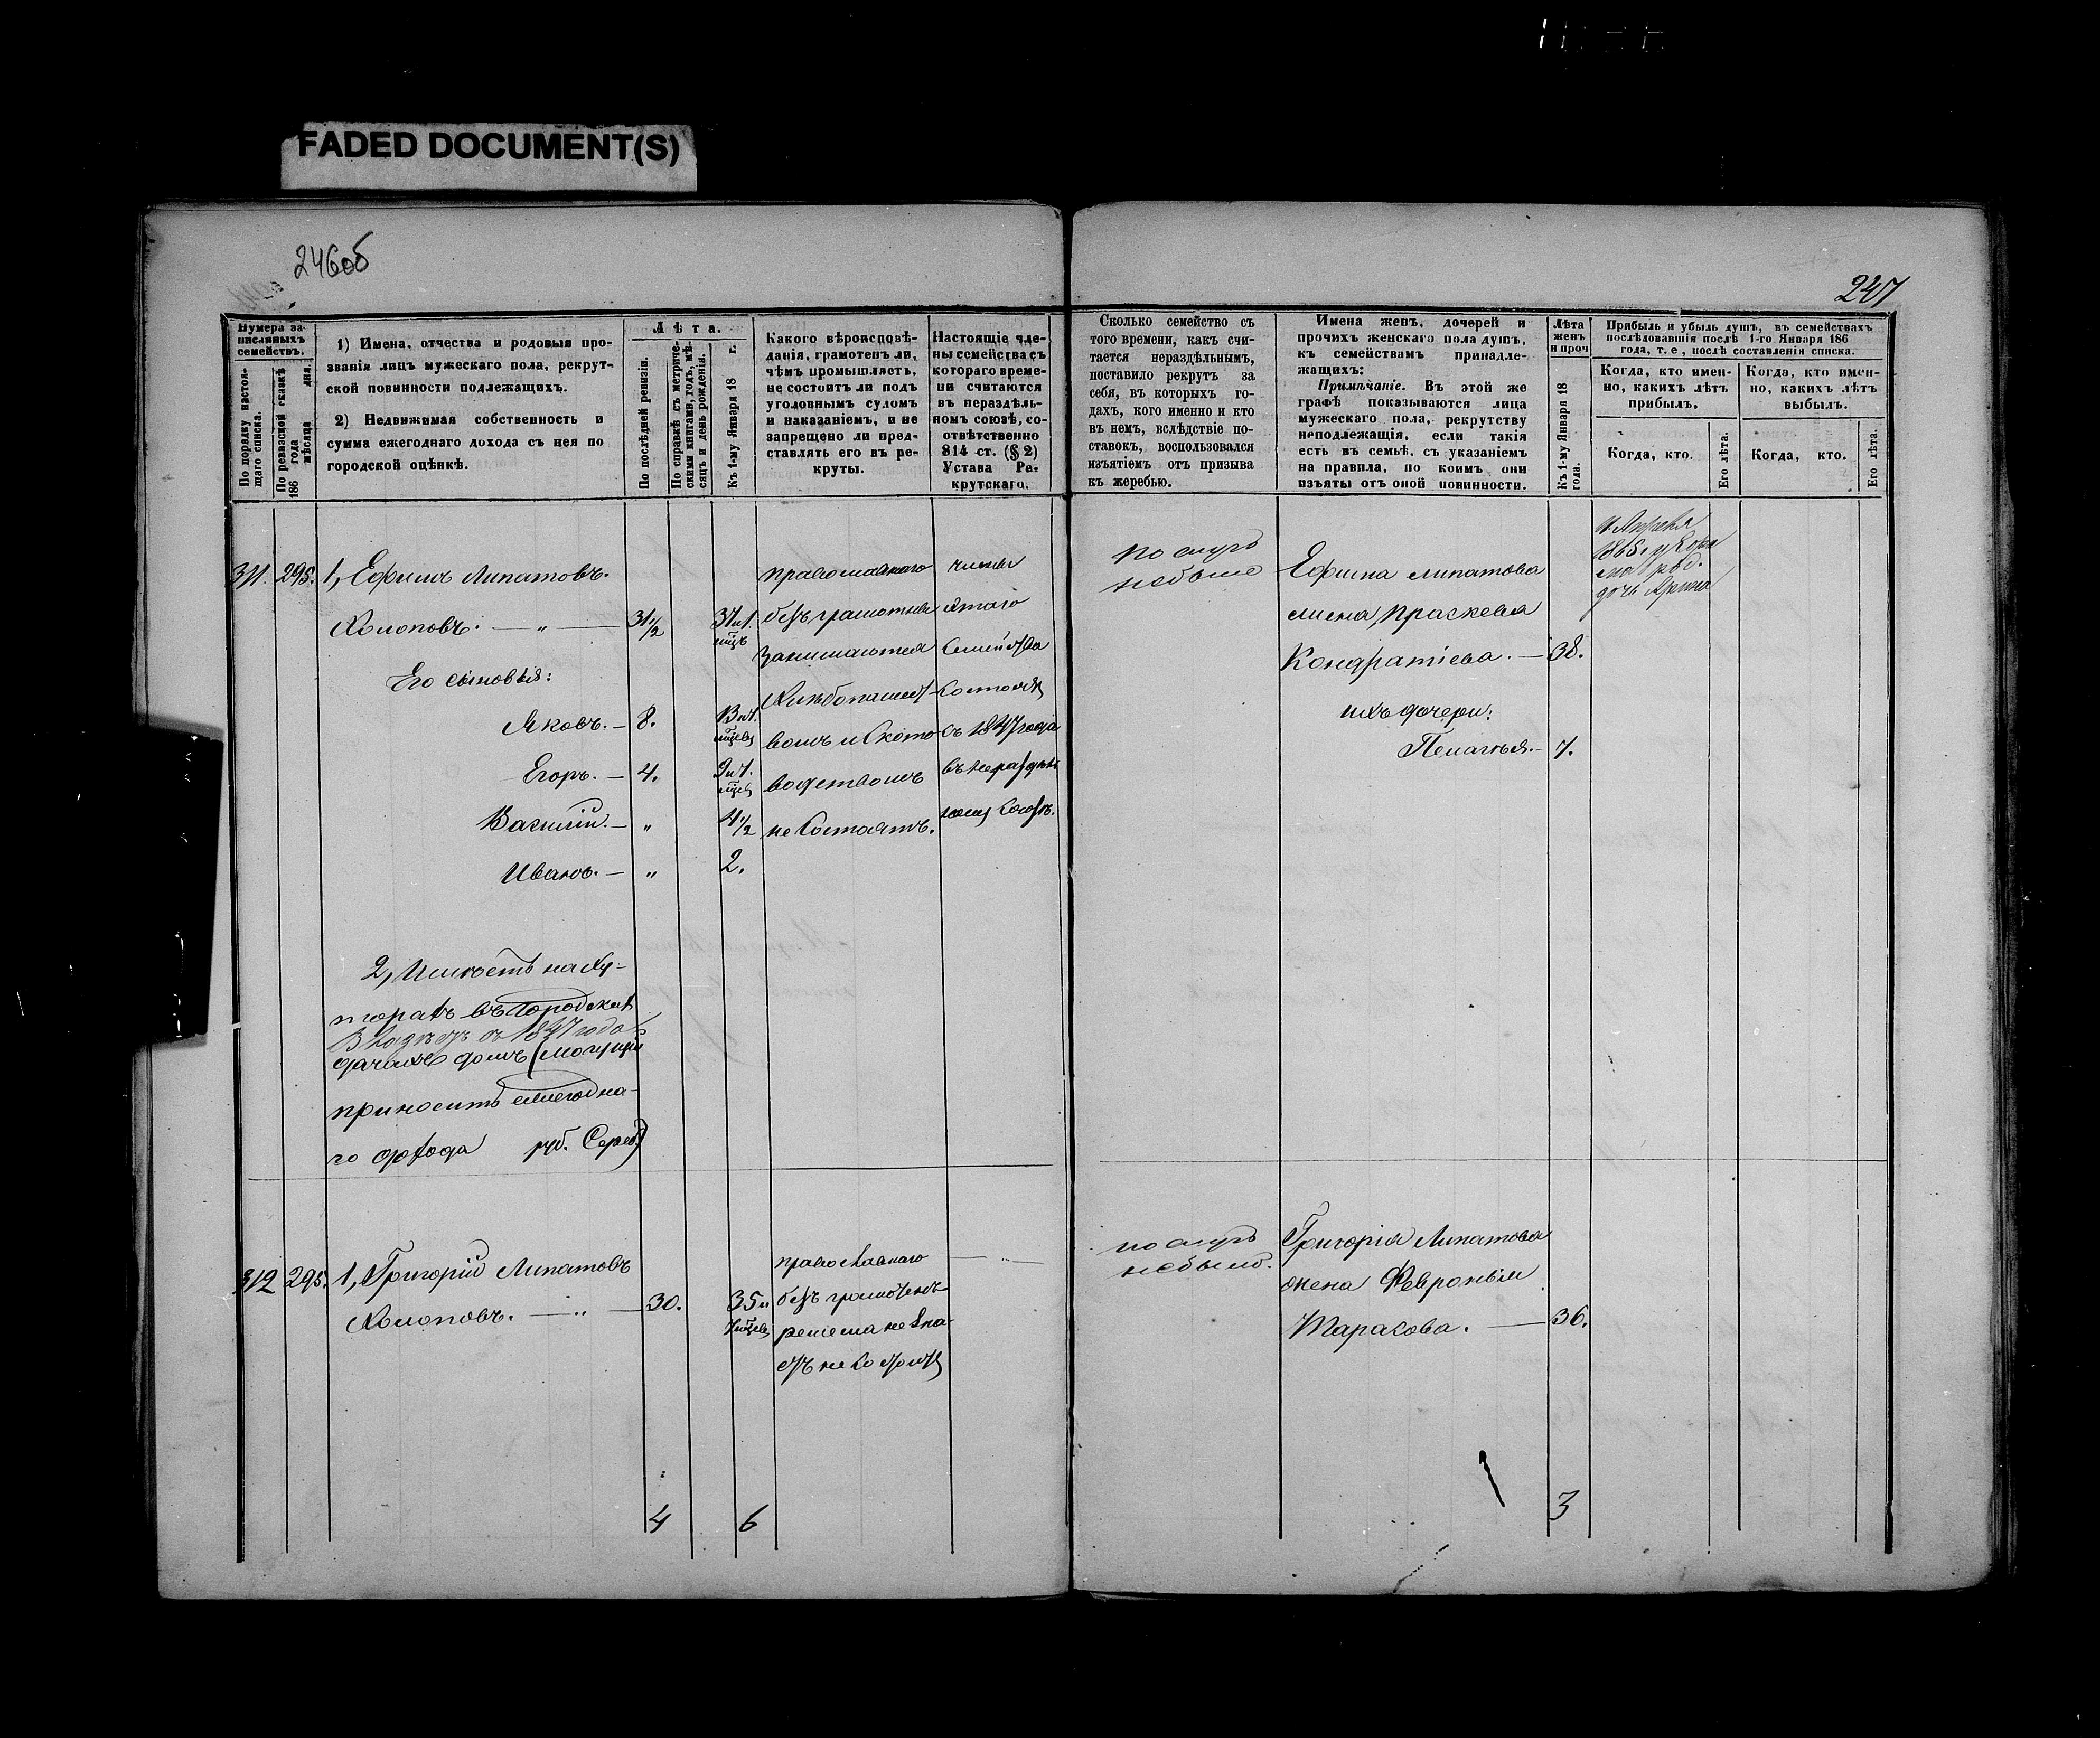 FADED DOCUMENT(S)
246об
247
Нумера за-
писанныхъ
семействъ.
По порядку настоя-
щаго списка.
По ревизской сказкѣ
186 года мѣсяца дня.
1) Имена, отчества и родовыя про-
званія лицъ мужескаго пола, рекрут-
ской повинности подлежащихъ.
2) Недвижимая собственность и
сумма ежегоднаго дохода съ нея по
городской оцѣнкѣ.
Лѣта.
По послѣдней ревизіи.
По справкѣ съ метриче-
скими книгами, годъ, мѣ-
сяцъ и день рожденія.
Къ 1-му Января 18 г.
Какого вѣроисповѣ-
данія, грамотенъ ли,
чѣмъ промышляетъ,
не состоитъ ли подъ
уголовнымъ судомъ
и наказаніемъ, и не
запрещено ли пред-
ставлять его въ ре-
круты.
Настоящіе чле-
ны семейства съ
котораго време-
ни считаются
въ нераздѣль-
номъ союзѣ, со-
отвѣтственно
814 ст. (§ 2)
Устава Ре-
крутскаго.
Сколько семейство съ
того времени, какъ счи-
тается нераздѣльнымъ,
поставило рекрутъ за
себя, въ которыхъ го-
дахъ, кого именно и кто
въ немъ, вслѣдствіе по-
ставокъ, воспользовался
изъятіемъ отъ призыва
къ жеребью.
Имена женъ, дочерей и
прочихъ женскаго пола душъ,
къ семействамъ принадле-
жащихъ:
Примѣчаніе. Въ этой же
графѣ показываются лица
мужескаго пола, рекрутству
неподлежащія, если такія
есть въ семьѣ, съ указаніемъ
на правила, по коимъ они
изъяты отъ оной повинности.
Лѣта
женъ
и проч
Къ 1-му Января 18
года.
Прибыль и убыль душъ, въ семействахъ
послѣдовавшія послѣ 1-го Января 186
года, т. е, послѣ составленія списка.
Когда, кто имен-
но, какихъ лѣтъ
прибылъ.
Когда, кто имен-
но, какихъ лѣтъ
выбылъ.
Когда, кто.
Его лѣта.
Когда, кто.
Его лѣта.
311. 295. 1, Ефимъ Липатовъ.
Холоповъ. — " — 31 1/2
Его сыновья:
Яковъ. — 8.
Егоръ. — 4.
Василій. — " 4 1/2
Иванъ. — " 2.
православнаго
безграмотны
занимаются
хлѣбопашест-
вомъ и ското-
водствомъ
не состоятъ.
члены
этаго
семейства
состоятъ
съ 1847 года
въ нераздѣль-
номъ союзѣ.
2, Имѣетъ на ху-
торахъ въ городскихъ
Владѣетъ съ 1847 года
дачахъ домъ (могущій
приносить ежегодна-
го дохода руб. Сереб.)
не было
Ефима Липатова
жена, Праскева
Кондратіева. — 38.
ихъ дочери:
Пелагѣя. — 7.
11 Апреля
дочь Арина
312 295. 1, Григорій Липатовъ
Холоповъ. — " — 30.
35 и
православнаго
безграмотенъ
ремесла не зна-
етъ не состоитъ
не было.
Григорія Липатова
жена Февронія
Тарасова. — 36.
4 6
3